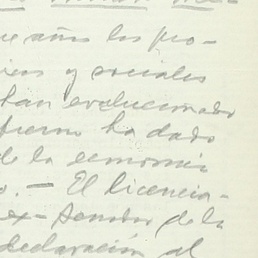 ue años los pro-
icos y sociales
han evolucionado
ha dado
de la economía
o. — El licencia-
ex-Senador de la
declaración al